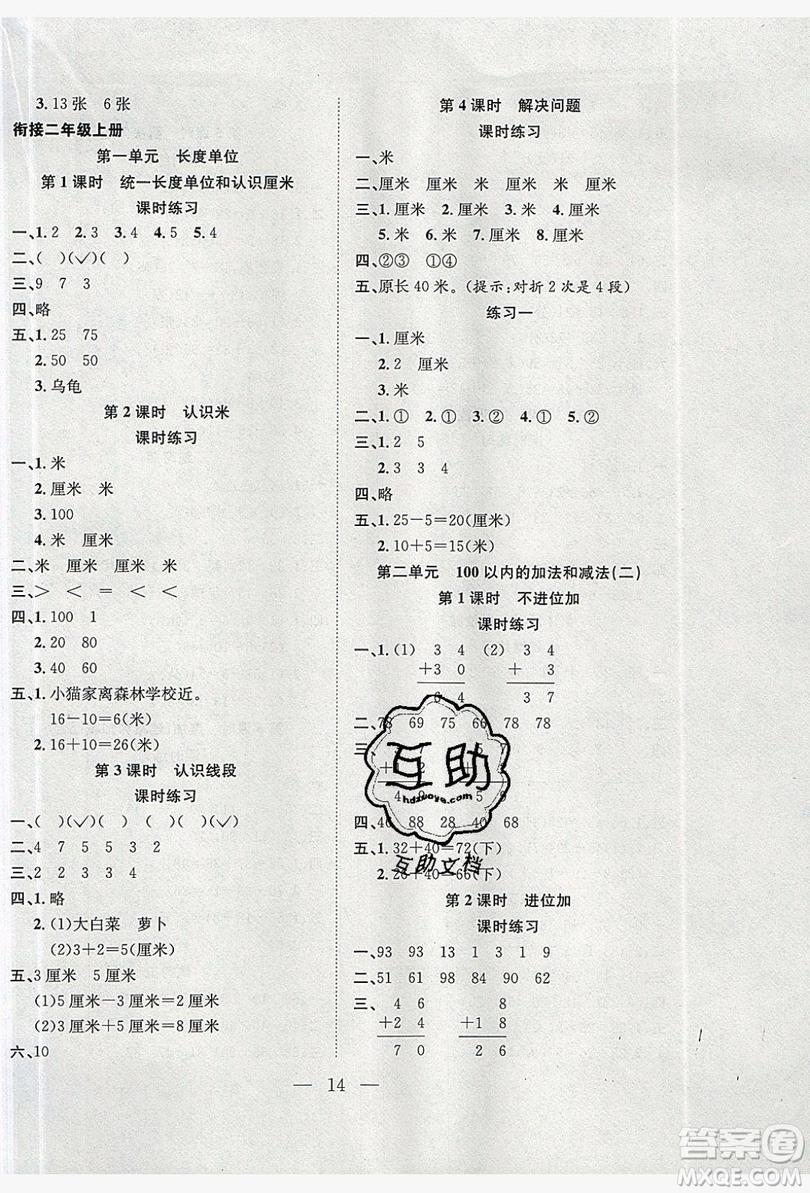 3.13张 6张
衔接二年级上册
第一单元 长度单位
第1课时 统一长度单位和认识厘米
课时练习
一、1.2 2.3 3.4 4.5 5.4
二、( )(✓)( )
三、9 7 3
四、略
五、1.25 75
2.50 50
3.乌龟
第2课时 认识米
课时练习
一、1.米
2.厘米 米
3.100
4.米 厘米
二、米 厘米 厘米 米
三、> < = < <
四、1.100 1
2.20 80
3.40 60
五、1.小猫家离森林学校近。
16-10=6(米)
2.16+10=26(米)
第3课时 认识线段
课时练习
一、( )(✓)( ) ( )(✓)( )
二、4 7 5 5 3 2
三、1 2 2 3 3 4
四、1.略
2.(1)大白菜 萝卜
(2)3+2=5(厘米)
五、3厘米 5厘米
(1)5厘米-3厘米=2厘米
(2)3厘米+5厘米=8厘米
六、10
第4课时 解决问题
课时练习
一、米
二、厘米 厘米 厘米 米
三、1.厘米 2.厘米 3.厘米 4.米
5.米 6.米 7.厘米 8.厘米
四、②③ ①④
五、原长40米。(提示:对折2次是4段)
练习一
一、1.厘米
2.2 厘米
3.米
二、1.① 2.① 3.② 4.① 5.②
三、1.2 5
2.3 3 4
四、略
五、1.25-5=20(厘米)
2.10+5=15(米)
第二单元 100以内的加法和减法(二)
第1课时 不进位加
课时练习
一、1.(1) 3 4 (2) 3 4
+3 0 + 3
6 4 3 7
二、78 69 75 66 78 78
三、
+
4 5 9
四、40 88 28 40 40 68
五、1.32+40=72(下)
2.26+40=66(下)
第2课时 进位加
课时练习
一、93 93 13 1 3 1 9
二、51 61 98 84 90 62
三、 4 6 8
+2 4 +1 8
7 0 2 6
14
互助
hdzuoye.com
互助文档
答案圈
MXQE.COM